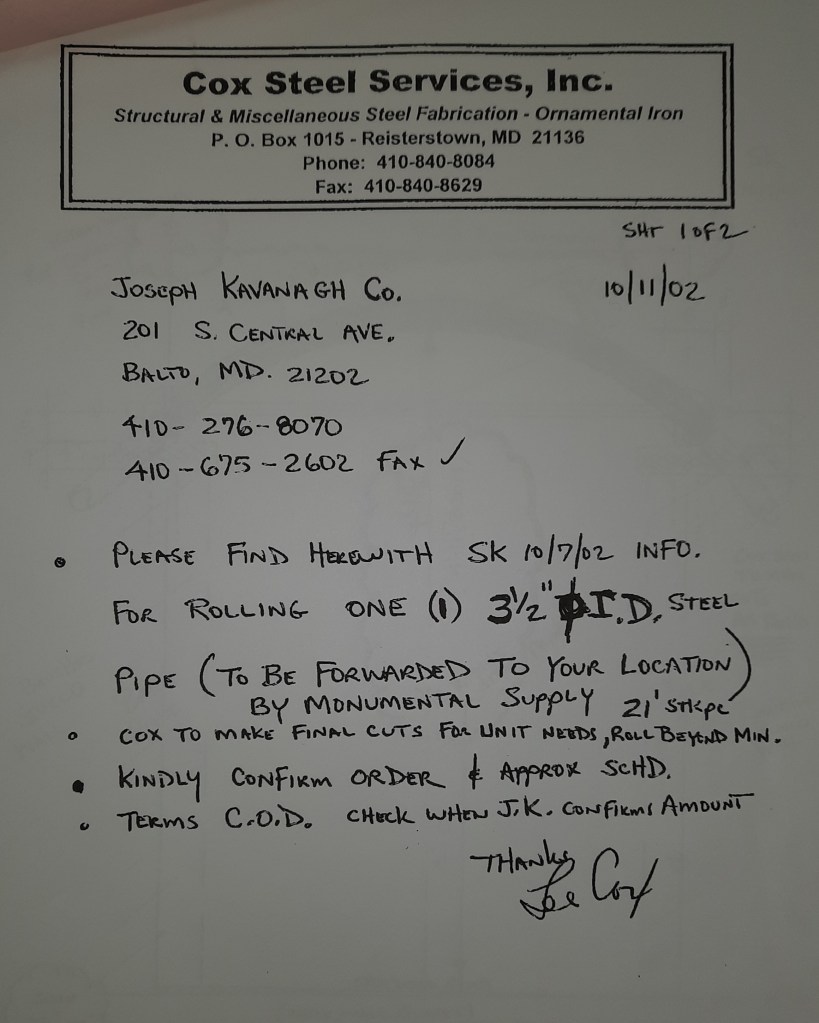 Cox Steel Services, Inc.
Structural & Miscellaneous Steel Fabrication - Ornamental Iron
P. O. Box 1015 - Reisterstown, MD 21136
Phone: 410-840-8084
Fax: 410-840-8629
SHT 1 OF 2
JOSEPH KAVANAGH CO.
10/11/02
201 S. CENTRAL AVE.
BALTO, MD. 21202
410-276-8070
410-675-2602 FAX ✓
• PLEASE FIND HEREWITH SK 10/7/02 INFO.
FOR ROLLING ONE (1) 3½" I.D. STEEL
PIPE (TO BE FORWARDED TO YOUR LOCATION
BY MONUMENTAL SUPPLY 21' STKPC)
• COX TO MAKE FINAL CUTS FOR UNIT NEEDS, ROLL BEYOND MIN.
• KINDLY CONFIRM ORDER & APPROX SCHD.
• TERMS C.O.D. CHECK WHEN J.K. CONFIRMS AMOUNT
THANKS
Lee Cox